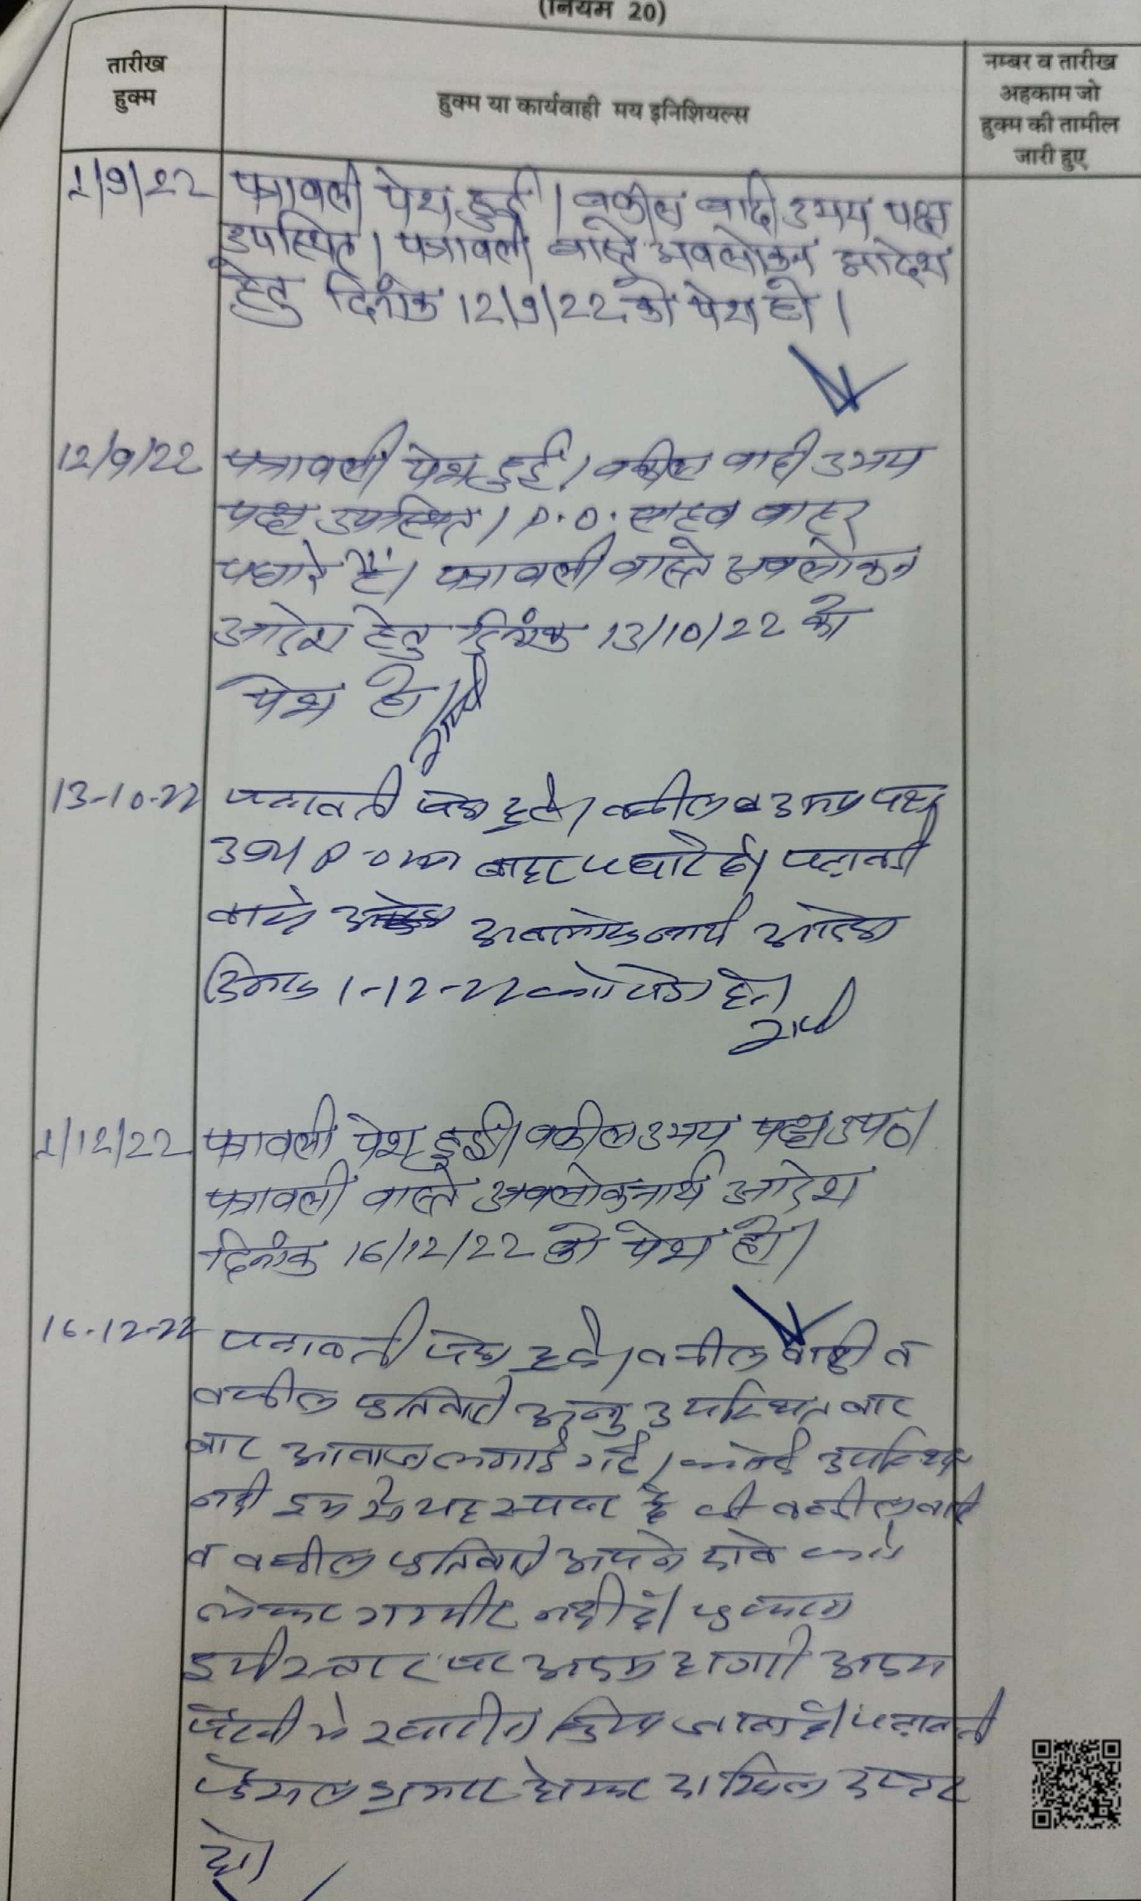 (नियम 20)
तारीख
हुक्म
हुक्म या कार्यवाही मय इनिशियल्स
नम्बर व तारीख
अहकाम जो
हुक्म की तामील
जारी हुए
1/9/22 पत्रावली पेश हुई। वकील वादी उभय पक्ष
उपस्थित। पत्रावली वास्ते अवलोकन आदेश
हेतु दिनांक 12/9/22 को पेश हो।
12/9/22 पत्रावली पेश हुई। वकील वादी उभय
पक्ष उपस्थित। P.O. साहब बाहर
पधारे हैं। पत्रावली वास्ते अवलोकन
आदेश हेतु दिनांक 13/10/22 को
पेश हो।
13-10-22 पत्रावली पेश हुई। वकील उभय पक्ष
उप। P.O बाहर पधारे है। पत्रावली
वास्ते अवलोकनार्थ आदेश
दिनांक 1-12-22 को पेश हो।
1/12/22 पत्रावली पेश हुई। वकील उभय पक्ष उप०।
पत्रावली वास्ते अवलोकनार्थ आदेश
दिनांक 16/12/22 को पेश हो।
16-12-22 पत्रावली पेश हुई। वकील वादी व
वकील प्रतिवादी अनुउपस्थित बार
बार आवाज लगाई गई। कोई उपस्थित
नही इस से यह स्पष्ट है की वकील वादी
व वकील प्रतिवादी अपने दावे को
लेकर गम्भीर नही है। प्रकरण
इसी स्तर पर अदम हाजरी अदम
पैरवी मे खारीज किया जाता है। पत्रावली
फैसल शुमार होकर दाखिल दफ्तर
हो।